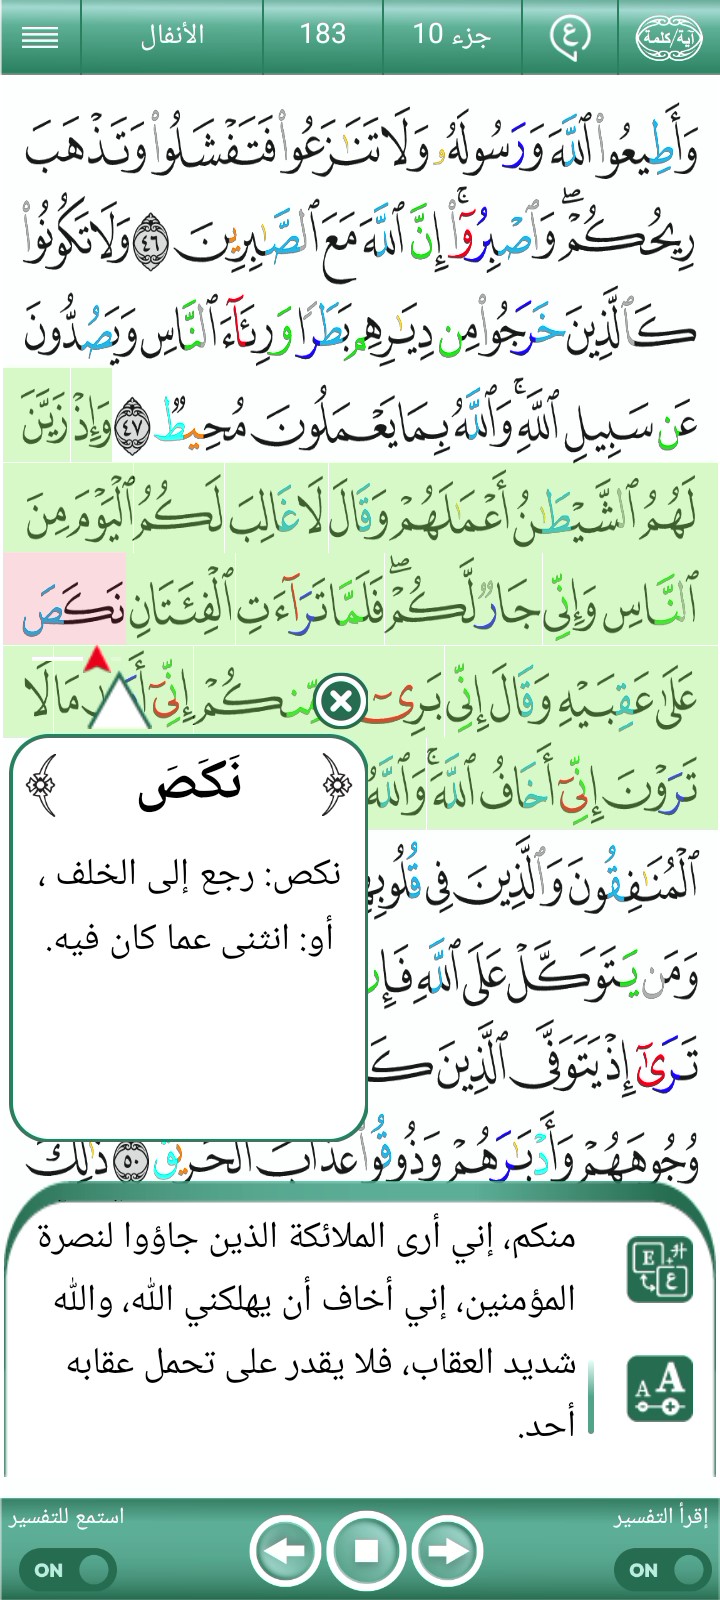 الأنفال 183 جزء 10 ع آية/كلمة
وَأَطِيعُوا۟ ٱللَّهَ وَرَسُولَهُۥ وَلَا تَنَـٰزَعُوا۟ فَتَفْشَلُوا۟ وَتَذْهَبَ
رِيحُكُمْ ۖ وَٱصْبِرُوٓا۟ ۚ إِنَّ ٱللَّهَ مَعَ ٱلصَّـٰبِرِينَ ٤٦ وَلَا تَكُونُوا۟
كَٱلَّذِينَ خَرَجُوا۟ مِن دِيَـٰرِهِم بَطَرًا وَرِئَآءَ ٱلنَّاسِ وَيَصُدُّونَ
عَن سَبِيلِ ٱللَّهِ ۚ وَٱللَّهُ بِمَا يَعْمَلُونَ مُحِيطٌ ٤٧ وَإِذْ زَيَّنَ
لَهُمُ ٱلشَّيْطَـٰنُ أَعْمَـٰلَهُمْ وَقَالَ لَا غَالِبَ لَكُمُ ٱلْيَوْمَ مِنَ
ٱلنَّاسِ وَإِنِّى جَارٌ لَّكُمْ ۖ فَلَمَّا تَرَآءَتِ ٱلْفِئَتَانِ نَكَصَ
عَلَىٰ عَقِبَيْهِ وَقَالَ إِنِّى بَرِىٓءٌ مِّنكُمْ إِنِّىٓ أَرَىٰ مَا لَا
تَرَوْنَ إِنِّىٓ أَخَافُ ٱللَّهَ ۚ وَٱللَّهُ
ٱلْمُنَـٰفِقُونَ وَٱلَّذِينَ فِى قُلُوبِهِم
وَمَن يَتَوَكَّلْ عَلَى ٱللَّهِ فَإِنَّ
تَرَىٰٓ إِذْ يَتَوَفَّى ٱلَّذِينَ
وُجُوهَهُمْ وَأَدْبَـٰرَهُمْ وَذُوقُوا۟ عَذَابَ ٱلْحَرِيقِ ٥٠ ذَٰلِكَ
﴿ نَكَصَ ﴾
نكص: رجع إلى الخلف ،
أو: انثنى عما كان فيه.
منكم، إني أرى الملائكة الذين جاؤوا لنصرة
المؤمنين، إني أخاف أن يهلكني الله، والله
شديد العقاب، فلا يقدر على تحمل عقابه
أحد.
E ع
A A
إقرأ التفسير استمع للتفسير
ON ON